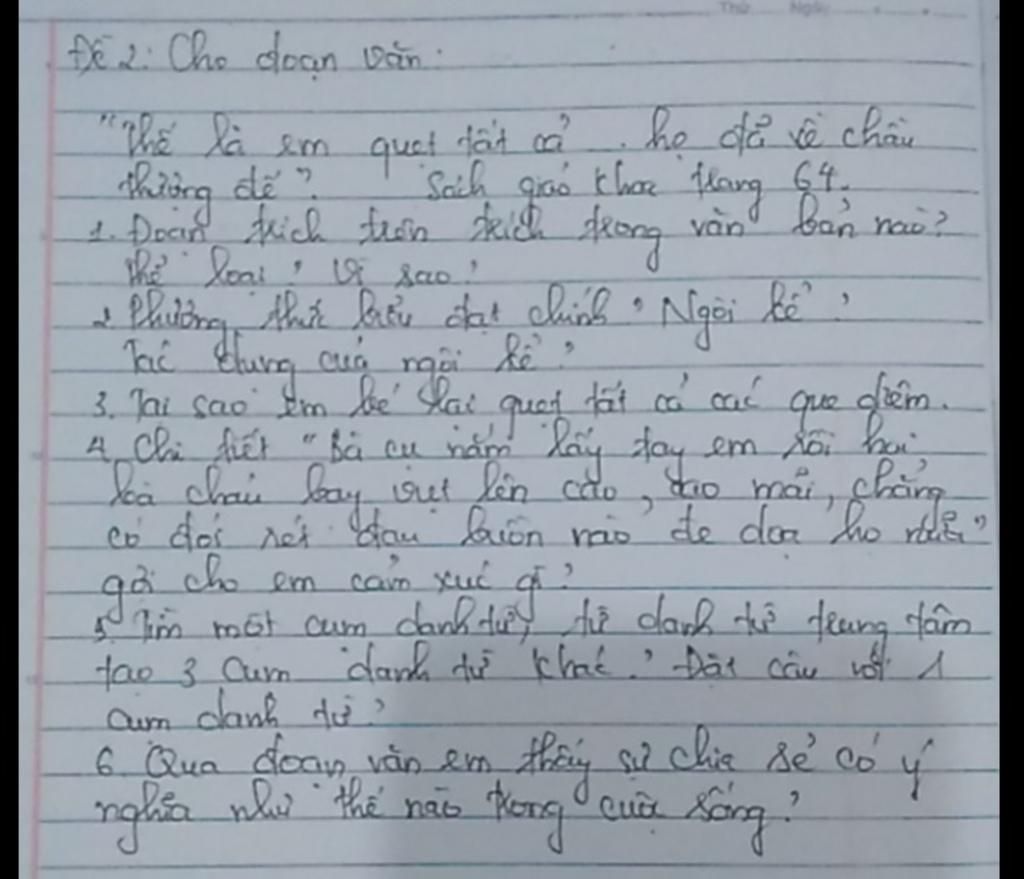 Thứ Ngày
Đề 2: Cho đoạn văn:
"Thế là em quẹt tất cả . họ đã về chầu
thượng đế". Sách giáo khoa trang 64.
1. Đoạn trích trên trích trong văn bản nào?
Thể loại? Vì sao?
2 Phương thức biểu đạt chính? Ngôi kể?
Tác dụng của ngôi kể?
3. Tại sao em bé lại quẹt tất cả các que diêm.
4. Chi tiết "Bà cụ nắm lấy tay em rồi hai
bà cháu bay vụt lên cao, cao mãi, chẳng
có đói rét đau buồn nào đe dọa họ nữa"
gợi cho em cảm xúc gì?
5. Tìm một cụm danh từ, từ danh từ trung tâm
tạo 3 cụm danh từ khác? Đặt câu với 1
cụm danh từ?
6. Qua đoạn văn em thấy sự chia sẻ có ý
nghĩa như thế nào trong cuộc sống?